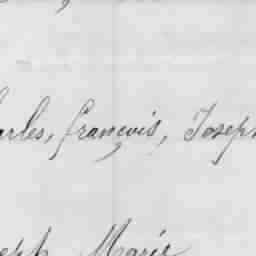 arles, françois, Joseph
eph Marie